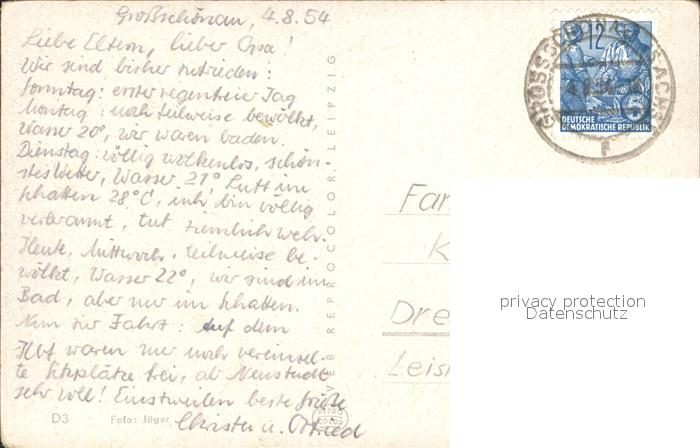 Großschönau, 4.8.54
Liebe Eltern, lieber Ossa!
Wir sind bisher zufrieden:
Sonntag: erster regenfreier Tag
Montag: noch teilweise bewölkt,
Wasser 20°, wir waren baden.
Dienstag: völlig wolkenlos, schön-
stes Wetter, Wasser 21° Luft im
Schatten 28°C, ich bin völlig
verbrannt, tut ziemlich weh.
Heute, Mittwoch, teilweise be-
wölkt, Wasser 22°, wir sind im
Bad, aber nur im Schatten.
Nun zur Fahrt: Auf dem
Hbf waren nur noch vereinzel-
te Sitzplätze frei, ab Neustadt
sehr voll! Einstweilen beste Grüße
Christen u. Ottfried
D3 Foto: Jäger
REPROCOLOR LEIPZIG
12
5
DEUTSCHE
DEMOKRATISCHE REPUBLIK
F
Fam
K
Dre
Leis
privacy protection
Datenschutz